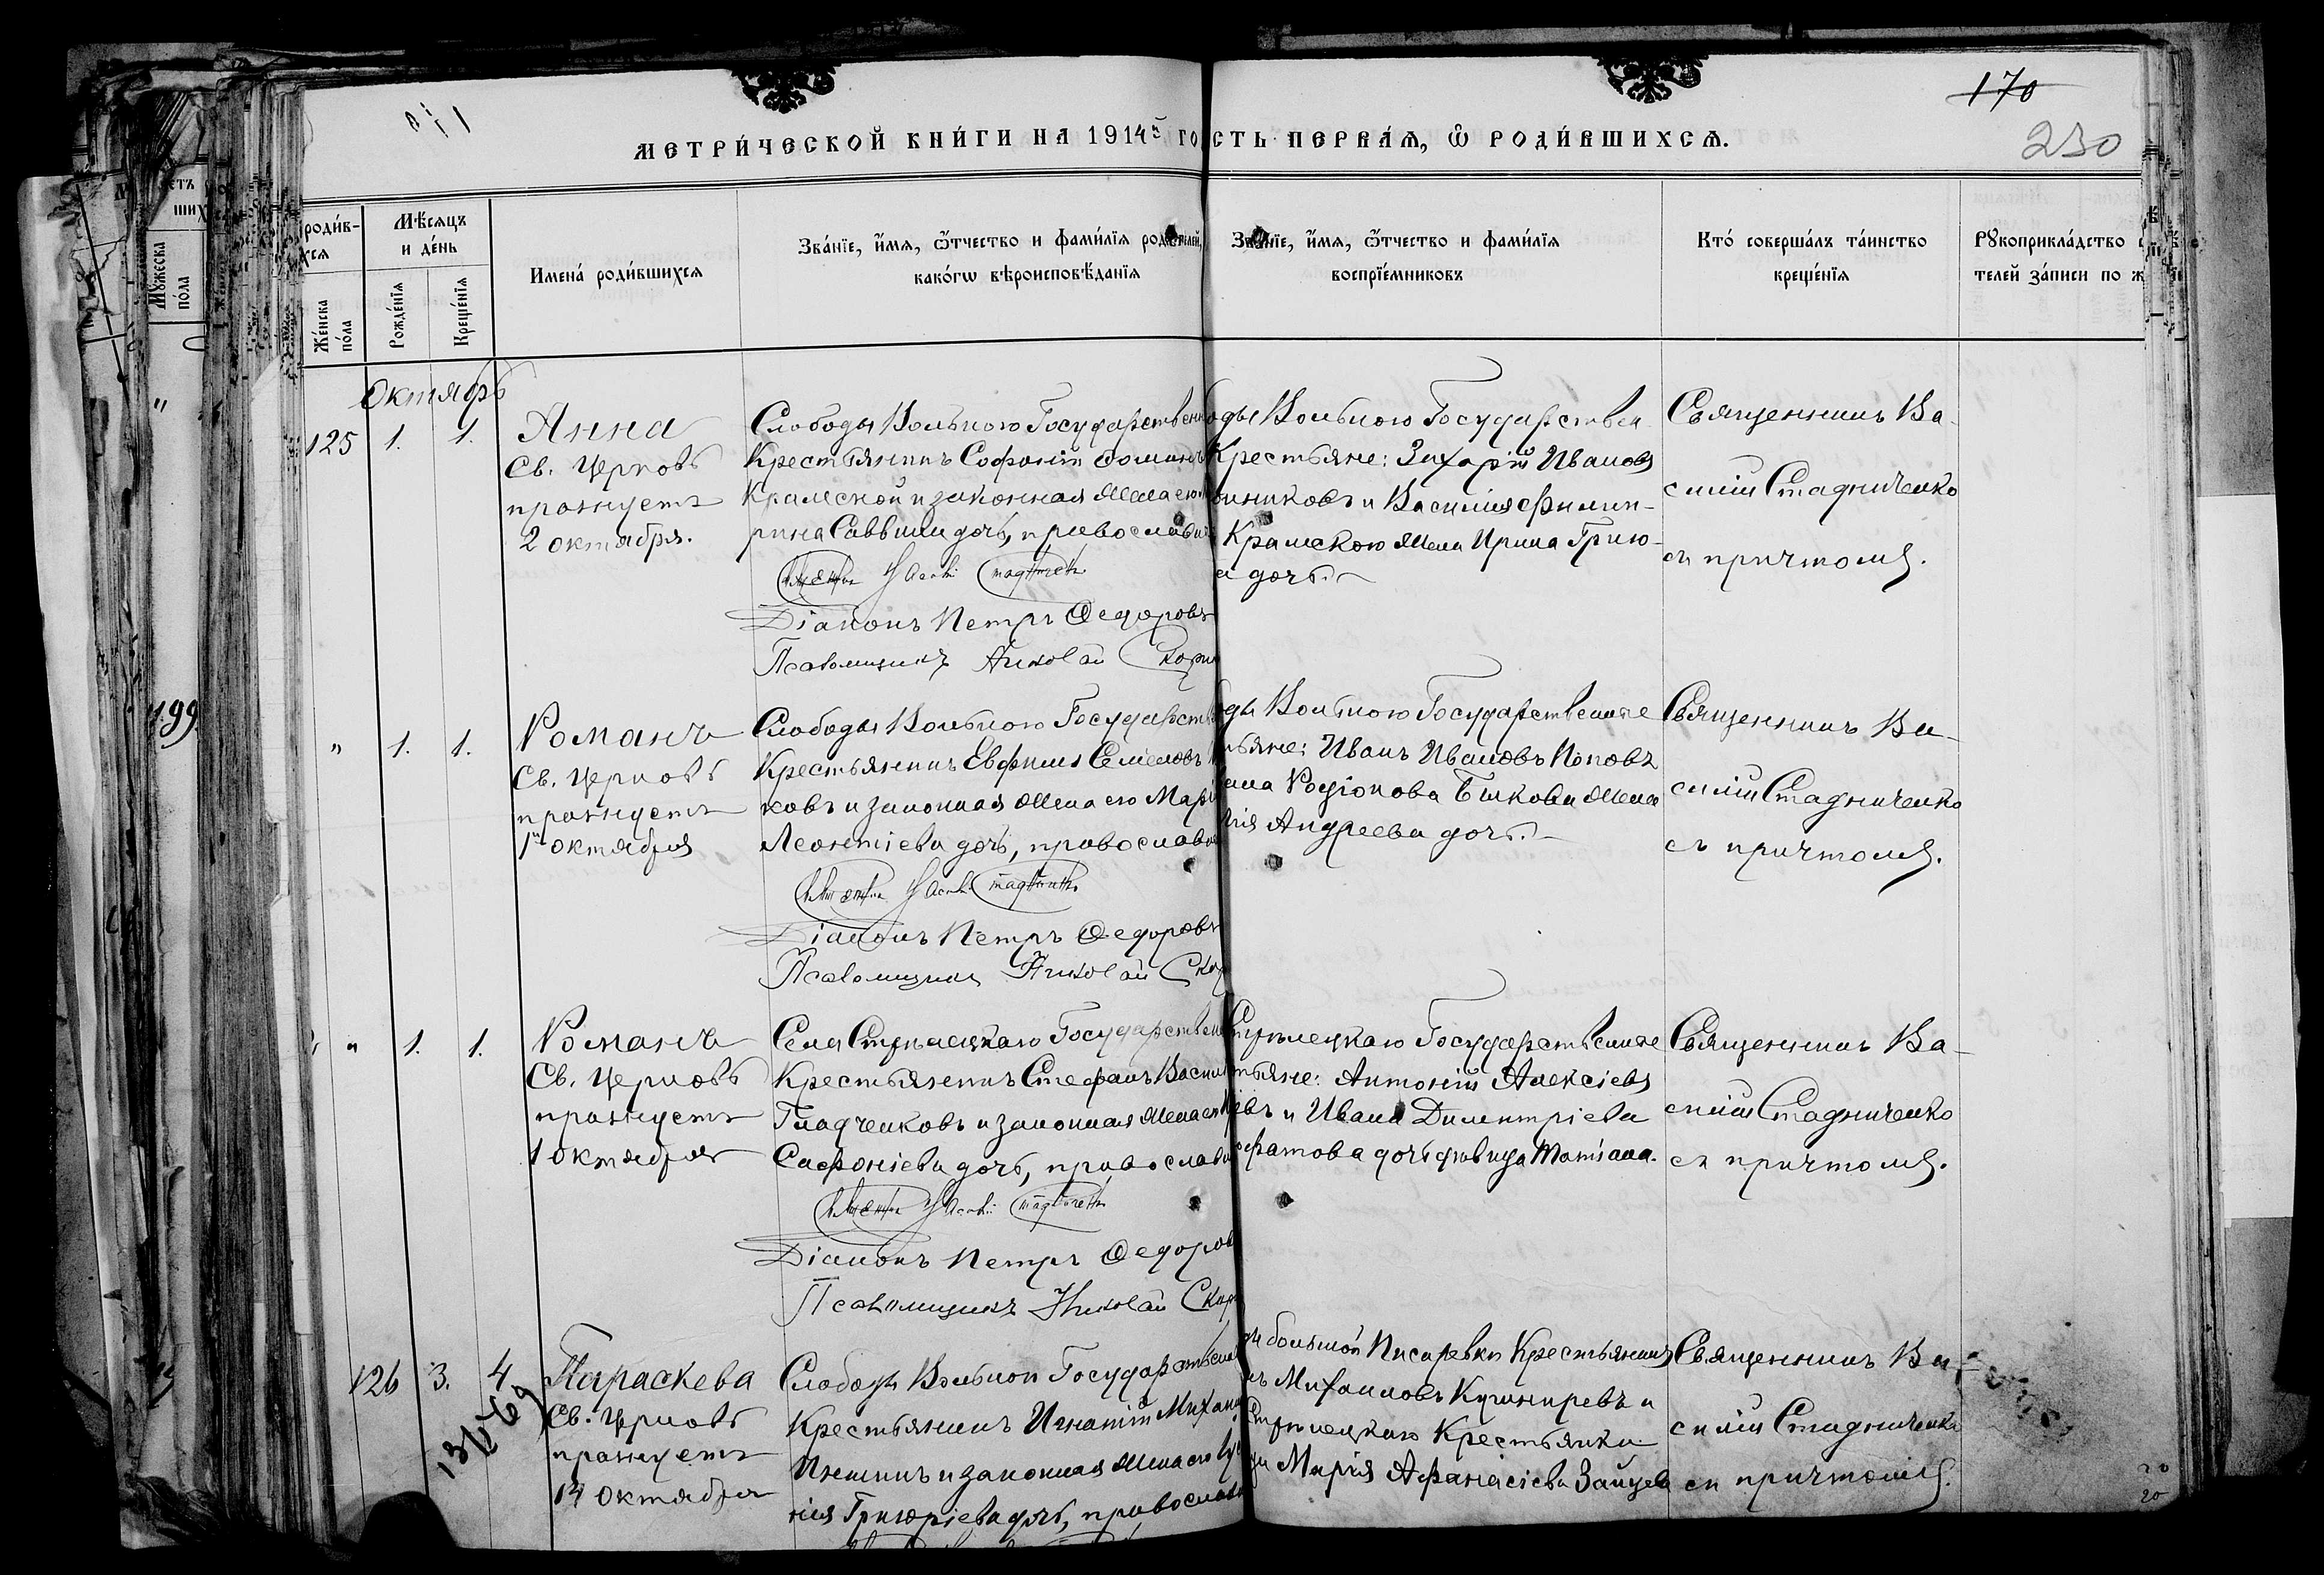 170
230
МЕТРИ́ЧЕСКОЙ КНИ́ГИ НА 1914й ГО
СТЬ ПЕРВА́Я, Ѿ РОДИ́ВШИХСЯ.
роди́в-
хся
Же́нска
по́ла
Мѣ́сяцъ
и де́нь
Рожде́нїя
Креще́нїя
Имена̀ роди́вшихся
Зва́нїе, и́мя, ѻ҆́тчество и фами́лїя
како́гѡ вѣроисповѣ́данїя
Зва́нїе, и́мя, ѻ҆́тчество и фами́лїя
воспрїе́мниковъ
Кто̀ соверша́лъ та́инство
креще́нїя
Рꙋкоприкла́дство
телей за́писи по ж
Октябрь
125 1. 1.
Анна
Св. Церковь
празнуетъ
2 октября.
Слободы Вольного Государственн
Крестьянинъ Софоній Фоминъ
Крамской и законная жена его
рина Саввина дочь, православн
Діаконъ Петръ Федоровъ
Псаломщикъ Николай
оды Вольного Государствен
Крестьяне: Захарій Ивановъ
никовъ и Василія Филип-
Крамского жена Ирина Григо-
а дочь.
Священникъ Ва-
силій Стадниченко
съ причтомъ.
199
" 1. 1.
Романъ
Св. Церковь
празнуетъ
1го октября
Слободы Вольного Государств
Крестьянинъ Евфимъ Семеновъ
ковъ и законная жена его Мар
Леонтіева дочь, православн
Діаконъ Петръ Федоровъ
Псаломщикъ Николай
оды Вольного Государственные
тьяне: Иванъ Ивановъ Поповъ
Родіонова Быкова жена
рія Андреева дочь.
Священникъ Ва-
силій Стадниченко
съ причтомъ.
" 1. 1.
Романъ
Св. Церковь
празнуетъ
1 октября
Села Стрѣлецкаго Государствен
Крестьянинъ Стефанъ Васил
Гладченковъ и законная жена его
Сафоніева дочь, православн
Діаконъ Петръ Федоров
Псаломщикъ Николай
Стрѣлецкаго Государственные
тьяне: Антоній Алексіевъ
евъ и Ивана Димитріева
фатова дочь дѣвица Татіана.
Священникъ Ва-
силій Стадниченко
съ причтомъ.
126 3. 4
Параскева
Св. Церковь
празнуетъ
14 Октября
Слободы Вольной Государствен
Крестьянинъ Игнатій Михаил
и законная жена его
нія Григоріева дочь, православн
большой Писаревки Крестьянинъ
Михаиловъ Кушниревъ и
Стрѣлецкаго Крестьянка
Марія Афанасіева Зайцева
Священникъ Ва-
силій Стадниченко
съ причтомъ.